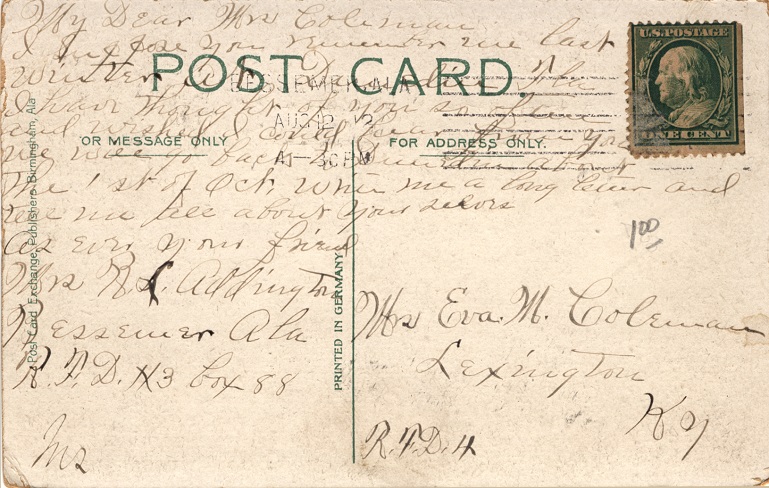 My Dear Mrs Coleman
I suppose you remember me last
winter
I have thought of you so often
and wished I could hear from you
we will go back
the 1st of Oct. write me a long letter and
tell me all about your selves
As ever your friend
Mrs R L Addington
Bessemer Ala
R.F.D. #3 Box 88
Ms
POST CARD.
BESSEMER, ALA
AUG 12
OR MESSAGE ONLY
FOR ADDRESS ONLY.
U.S. POSTAGE
ONE CENT
1 00
Mrs Eva. M. Coleman
Lexington
Ky
R.F.D. 4
PRINTED IN GERMANY
Post Card Exchange, Publishers Birmingham, Ala